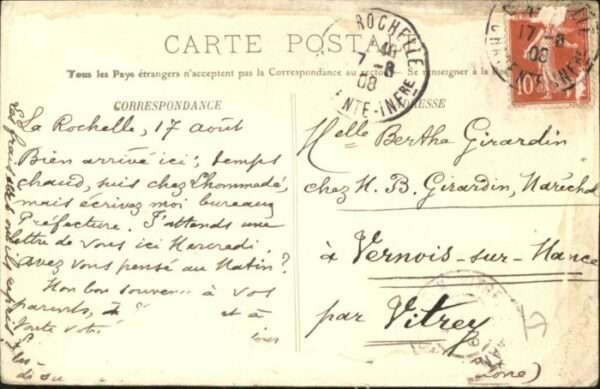 CARTE POSTALE
Tous les Pays étrangers n'acceptent pas la Correspondance au recto. Se renseigner à la
CORRESPONDANCE
La Rochelle, 17 août
Bien arrivé ici; temps
chaud, suis chez Lhommedé,
mais écrivez moi bureau
Préfecture. J'attends une
lettre de vous ici Mercredi.
avez vous pensé au Matin?
Mon bon souvenir à vos
parents, à et à
toute votre
ADRESSE
Melle Bertha Girardin
chez M. B. Girardin, Maréchal
à Vernois-sur-Mance
par Vitrey
LA ROCHELLE
17-8
08
CHARENTE-INFRE
ROCHELLE
17-8
08
CHARENTE-INFRE
10